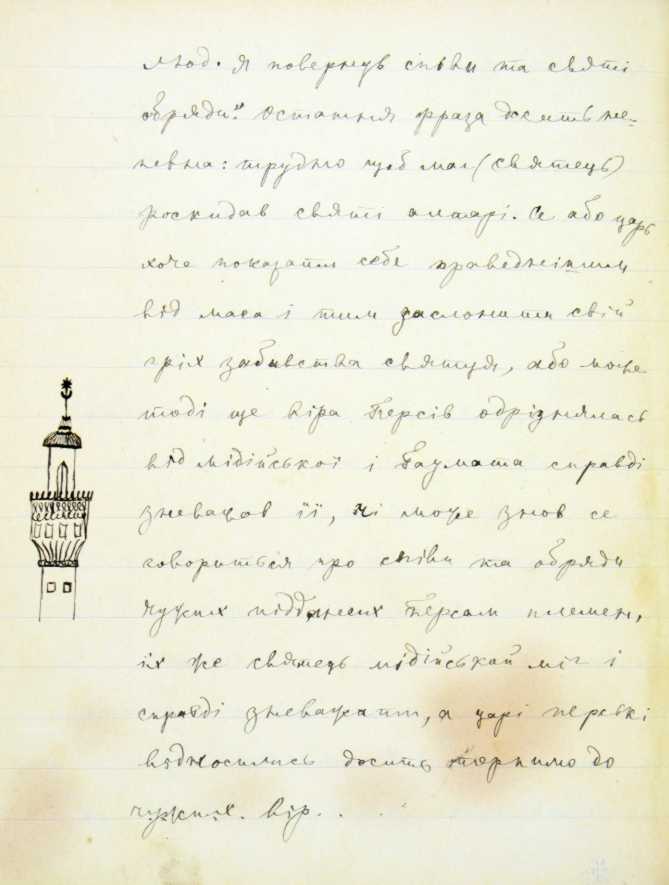 люд. Я повернув співи та святі
обряди." Остання фраза досить не-
певна: трудно щоб маг (святець)
роскидав святі олтарі. Се або царь
хоче показати себе праведнішим
від мага і тим заслонити свій
гріх забивства святця, або може
тоді ще віра Персів одрізнялась
від мідійської і Гаумата справді
зневажав її, чі може знов се
говориться про співи та обряди
чужих підданих Персам племен,
їх же святець мідійський міг і
справді зневажати, а царі перські
відносились досить терпимо до
чужих вір...